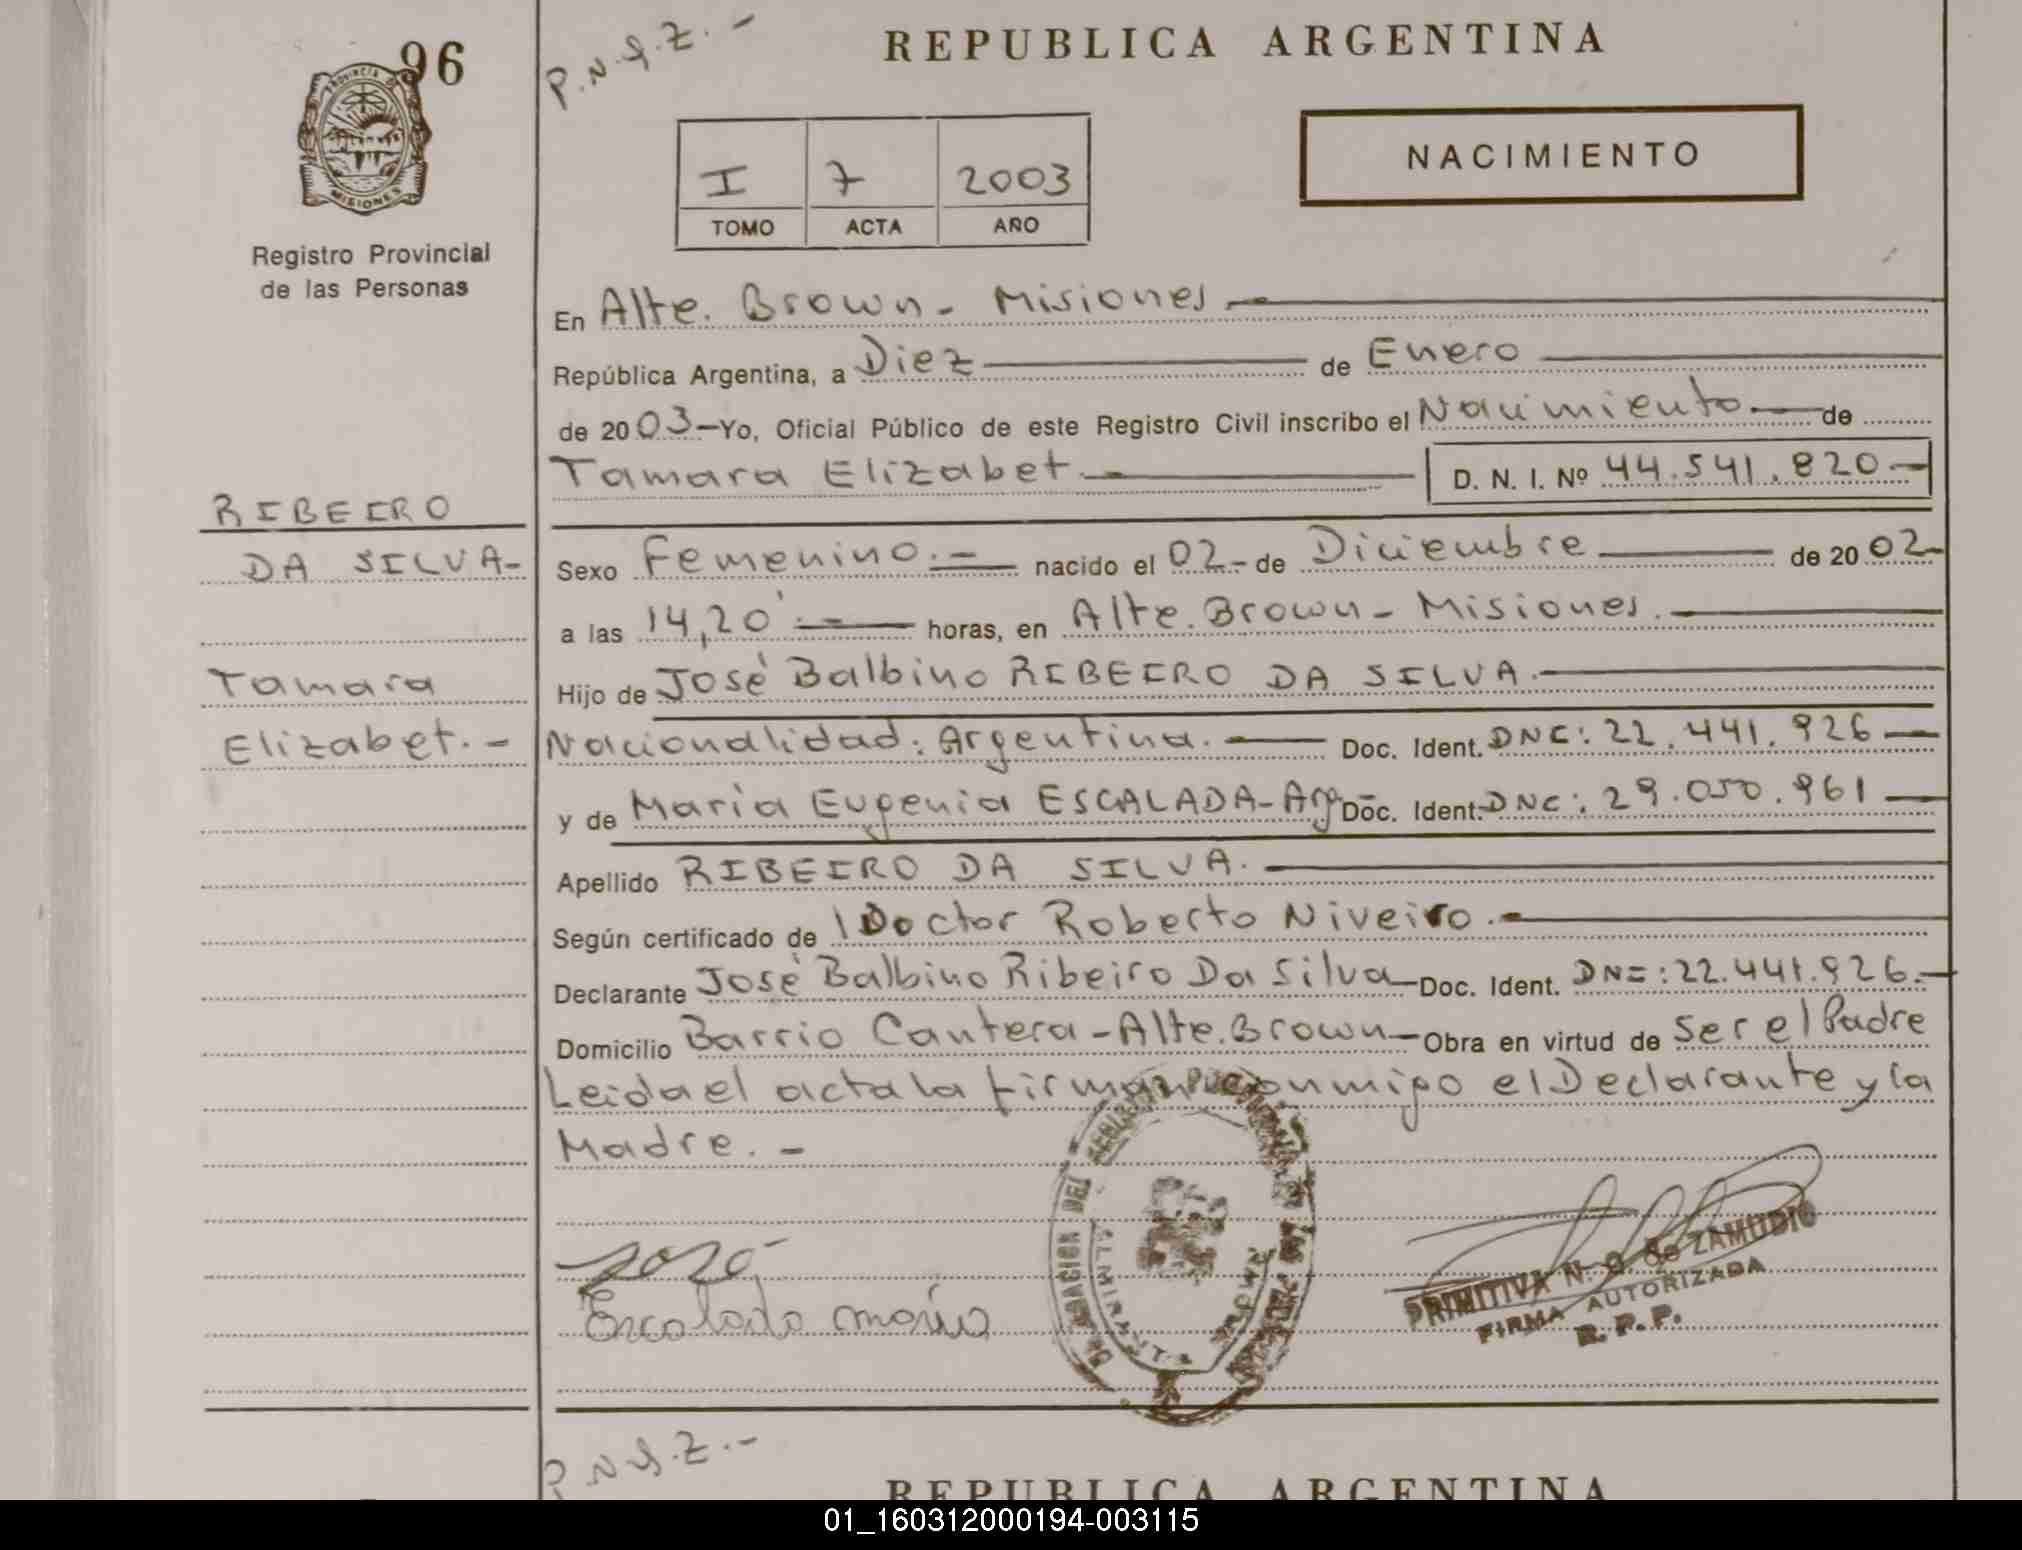 96
P.N.G.Z.-
REPUBLICA ARGENTINA
PROVINCIA DE
MISIONES
Registro Provincial
de las Personas
I 7 2003
TOMO ACTA AÑO
NACIMIENTO
En Alte. Brown - Misiones
República Argentina, a Diez de Enero
de 2003 - Yo, Oficial Público de este Registro Civil inscribo el Nacimiento de
Tamara Elizabet D. N. I. Nº 44.541.820
RIBEIRO
DA SILVA-
Tamara
Elizabet.-
Sexo Femenino.- nacido el 02 - de Diciembre de 2002
a las 14,20 horas, en Alte. Brown - Misiones.
Hijo de José Balbino RIBEIRO DA SILVA.
Nacionalidad: Argentina. Doc. Ident. DNI: 22.441.926
y de Maria Eugenia ESCALADA-Arg Doc. Ident. DNI: 29.050.961
Apellido RIBEIRO DA SILVA.
Según certificado de Doctor Roberto Niveiro.
Declarante José Balbino Ribeiro Da Silva Doc. Ident. DNI: 22.441.926.-
Domicilio Barrio Cantera - Alte. Brown Obra en virtud de Ser el Padre
Leida el acta la firman conmigo el Declarante y la
Madre.-
José
Escalada maria
DELEGACION DEL
ALMIRANTE
PRIMITIVA N. G de ZAMUDIO
FIRMA AUTORIZADA
R. P. P.
P.N.G.Z.-
REPUBLICA ARGENTINA
01_160312000194-003115